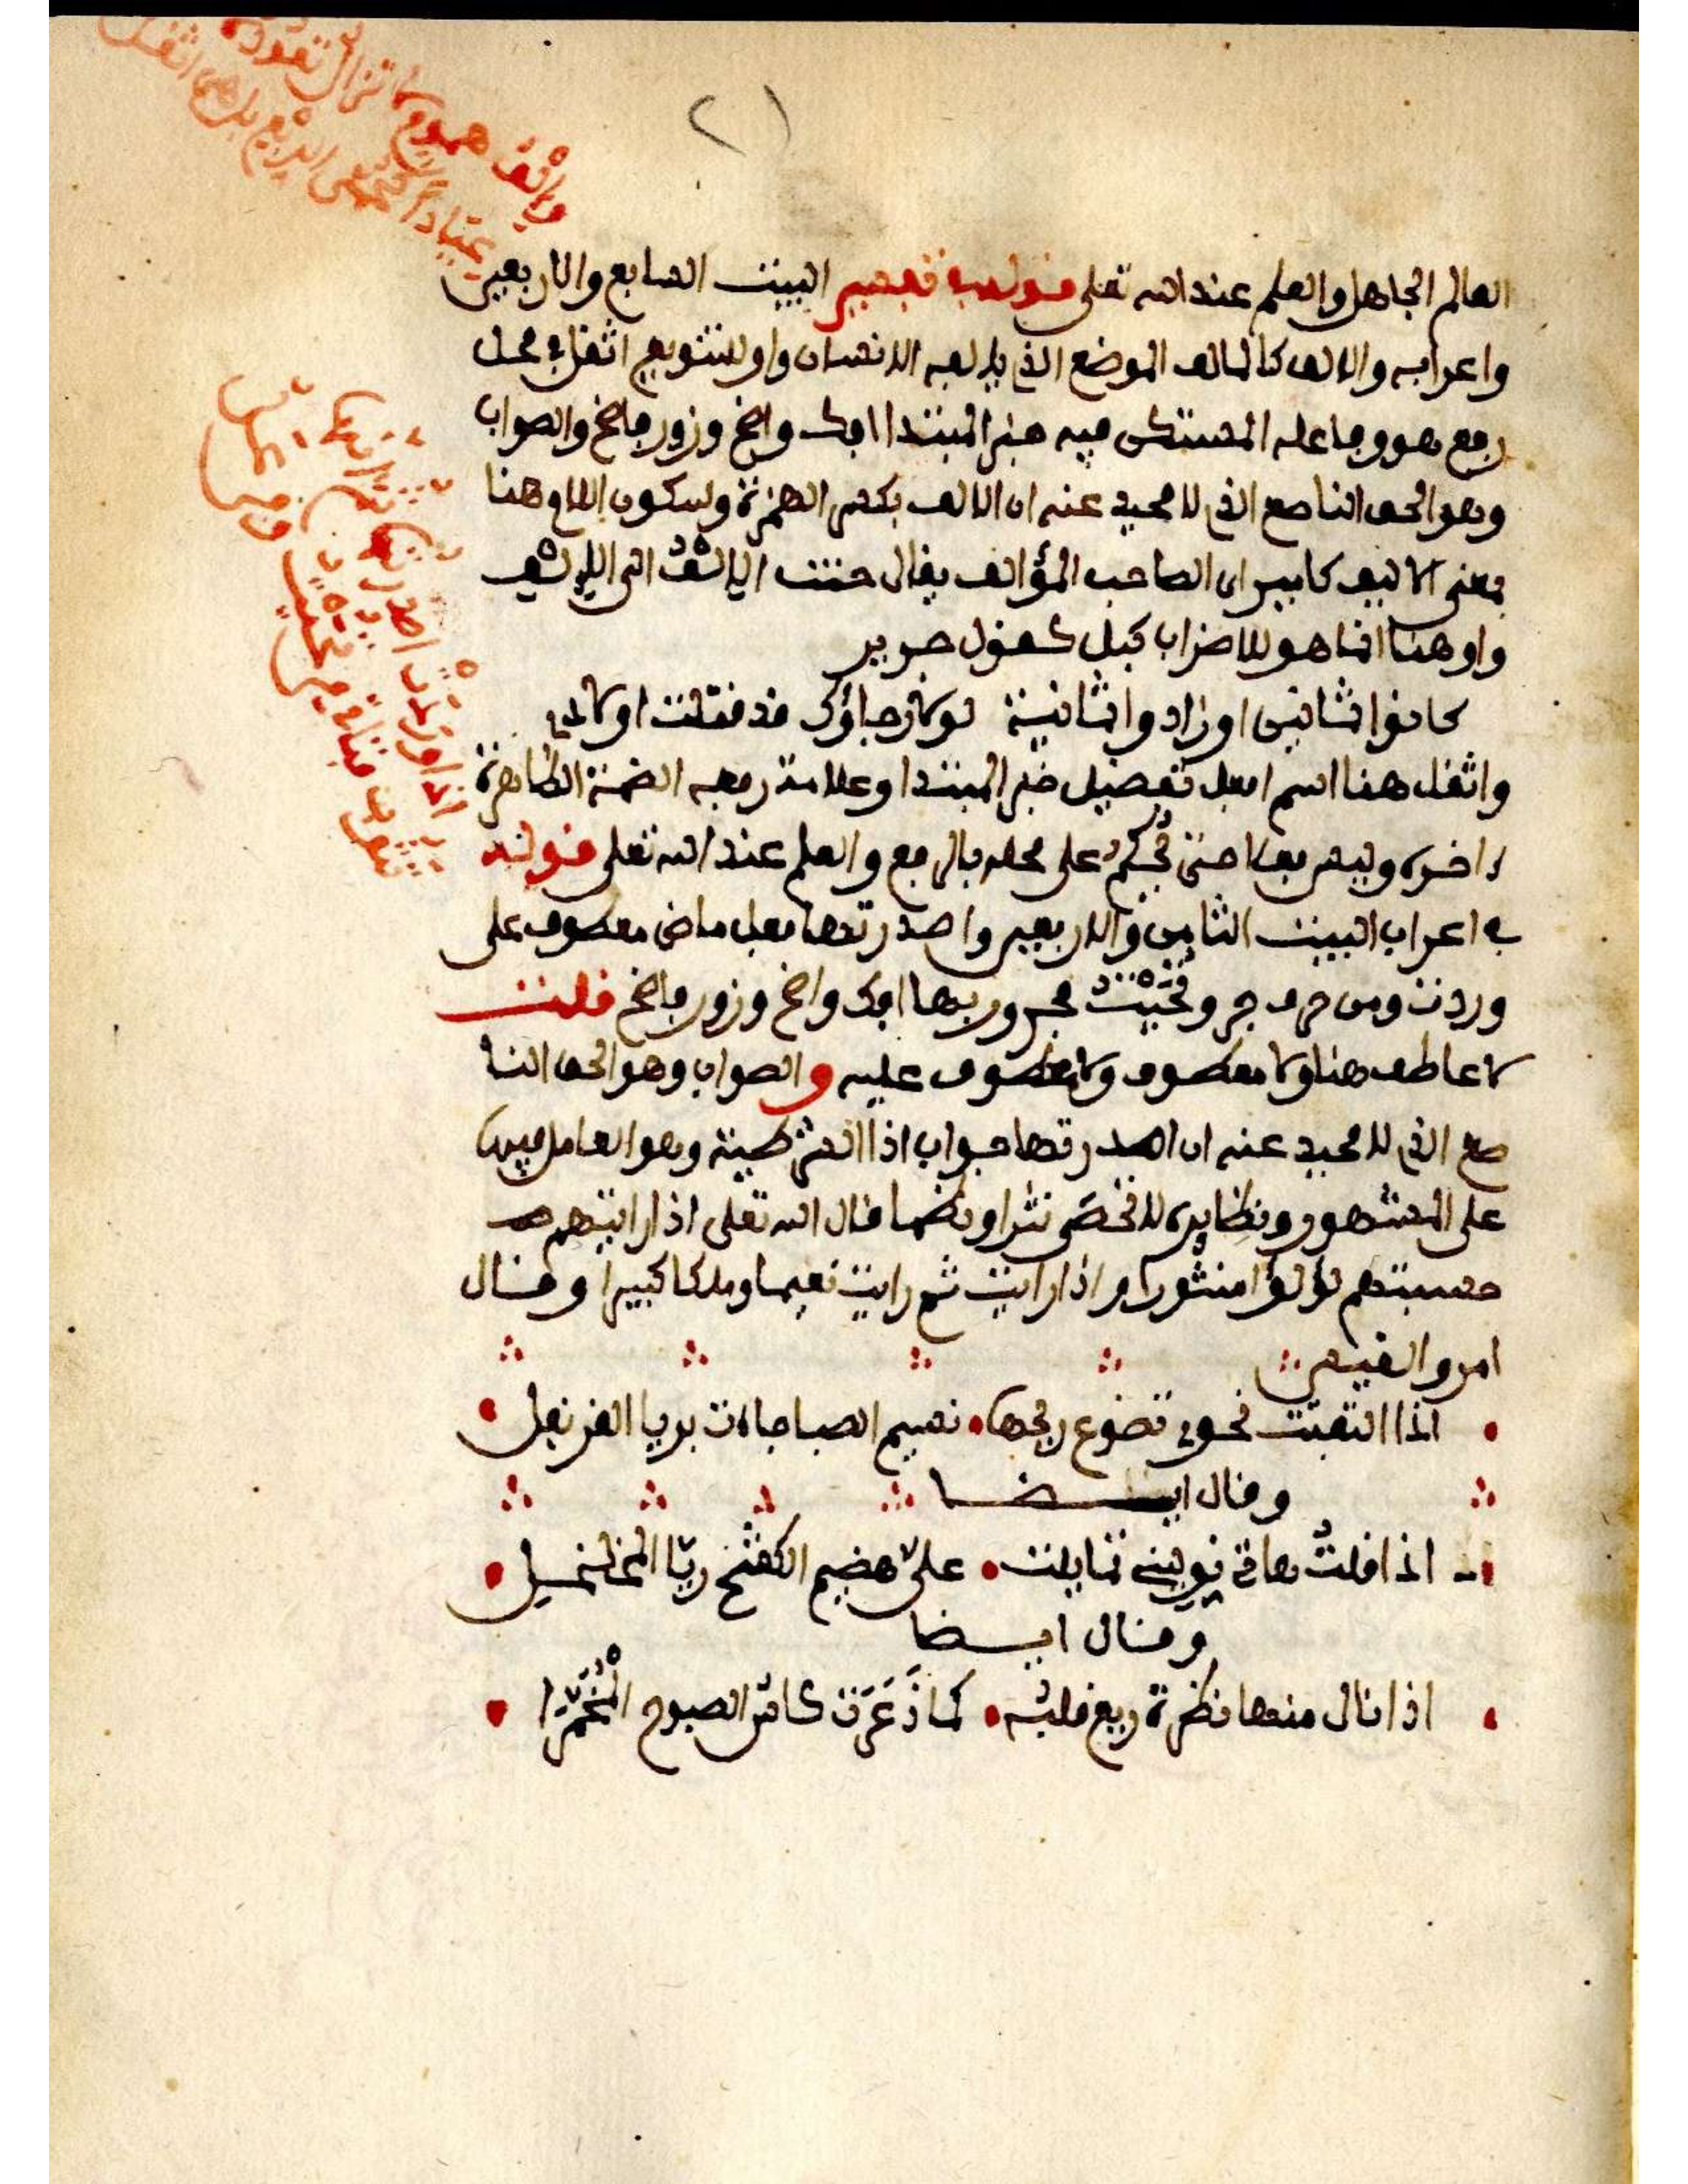 ٢١
وإلف هموم ما تزال تعوده
عيادا كحمى الربع بل هي اثقل
العالم الجاهل والعلم عند الله تعلى قوله في تفسير البيت السابع والاربعين
واعرابه والالف كالمالف الموضع الذي يالفه الانسان واو للتنويع اثقل في محل
رفع هو وفاعله المستكن فيه خبر المبتدا افك واضح وزور فاضح والصواب
وهو الحق الناصع الذي لا محيد عنه ان الالف بكسر الهمزة وسكون اللام هنا
بمعنى الاليف كامير اي الصاحب المؤالف يقال حنت الإلْفُ الى الإلْف
واو هنا انما هو للاضراب كبل كقول جرير
كانوا ثمانين او زادوا ثمانية لولا رجاؤك قد قتلت اولادي
واثقل هنا اسم افعل تفضيل خبر المبتدا وعلامة رفعه الضمة الظاهرة
في اخره وليس بفعل حتى يُحكم على محله بالرفع والعلم عند الله تعلى قوله
في اعراب البيت الثامن والاربعين واصدرتها فعل ماض معطوف على
وردت ومن حرف جر وتُحَيْتُ مجرور بها افك واضح وزور فاضح قلت
لا عاطف هنا ولا معطوف ولا معطوف عليه والصواب وهو الحق النا
صع الذي لا محيد عنه ان اصدرتها جواب اذا الشرطية وهو العامل فيها
على المشهور ونظايره لا تحصى نثرا ونظما قال الله تعلى اذا رايتهم حـ
حسبتهم لؤلؤا منثورا واذا رايت ثم رايت نعيما وملكا كبيرا وقال
امرو القيس
اذا التفتت نحوي تضوع ريحها نسيم الصبا جاءت بريا القرنفل
وقال ايضا
اذا قلتُ هاتي نوليني تمايلت عليَّ هضيم الكشح ريَّا المخلخل
وقال ايضا
اذا نال منها نظرة ريع قلبه كما ذَعَرَت كاسُ الصبوح الْمُخَمَّرا
اذا وردتْ اصدرتها ثم انها
تثوب فتاتي من تُحَيْتُ ومن عل